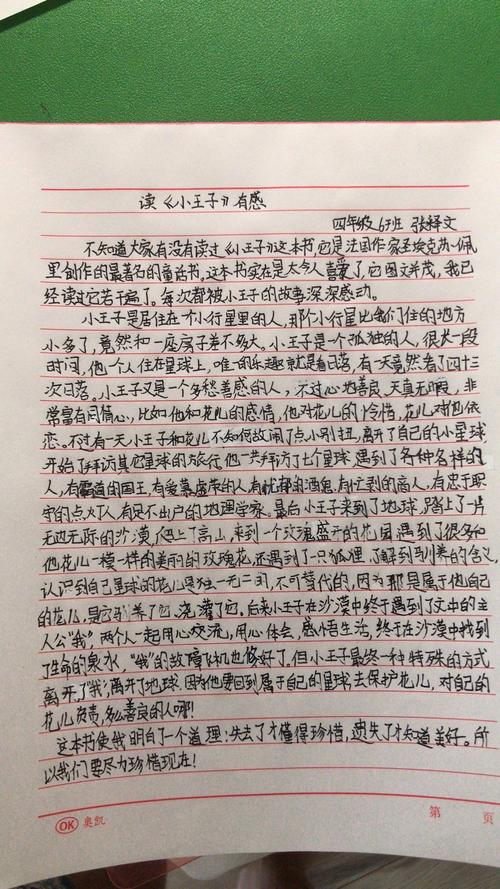 读《小王子》有感
四年级6班 张释文
不知道大家有没有读过《小王子》这本书,它是法国作家圣埃克苏·佩
里创作的最著名的童话书,这本书实在是太令人喜爱了,它图文并茂,我已
经读过它若干篇了。每次都被小王子的故事深深感动。
小王子是居住在一个小行星里的人,那个小行星比我们住的地方
小多了,竟然和一座房子差不多大。小王子是一个孤独的人,很长一段
时间,他一个人住在星球上,唯一的乐趣就是看日落,有一天竟然看了四十三
次日落。小王子又是一个多愁善感的人,不过心地善良、天真无暇,非
常富有同情心,比如他和花儿的感情,他对花儿的怜惜,花儿对他依
恋。不过有一天小王子和花儿不知何故闹了点小别扭,离开了自己的小星球,
开始了拜访其它星球的旅行,他一共拜访了七个星球,遇到了各种各样的
人,有霸道的国王,有爱慕虚荣的人,有忧郁的酒鬼,有忙剥的商人,有忠于职
守的点火丁人,有足不出户的地理学家。最后小王子来到了地球,踏上了一片
无边无际的沙漠,爬上了高山,来到一个玫瑰盛开的花园,遇到了很多和
他花儿一模一样的美丽的玫瑰花,还遇到了一只狐狸,了解到驯养的含义,
认识到自己星球的花儿是独一无二的,不可替代的,因为那是属于他自己
的花儿,是它驯养了它,浇灌了它,后来小王子在沙漠中终于遇到了文中的主
人公“我”,两个人一起用心交流,用心体会,感悟生活,终于在沙漠中找到
了生命的泉水,“我”的故障飞机也修好了。但小王子最终一种特殊的方式
离开了“我”,离开了地球,因为他要回到属于自己的星球,去保护花儿,对自己的
花儿负责,多么善良的人哪!
这本书使我明白了一个道理:失去了才懂得珍惜,遗失了才知道美好。所
以我们要尽力珍惜现在!
OK 奥凯
第 页